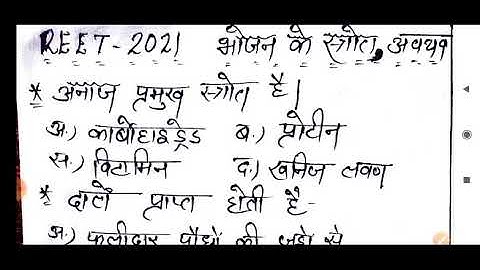 REET-2021 भोजन के स्त्रोत, अवयव
* अनाज प्रमुख स्त्रोत है।
अ.) कार्बोहाइड्रेड ब.) प्रोटीन
स.) विटामिन द.) खनिज लवण
* दालें प्राप्त होती है -
अ.) फलीदार पौधों की जड़ो से